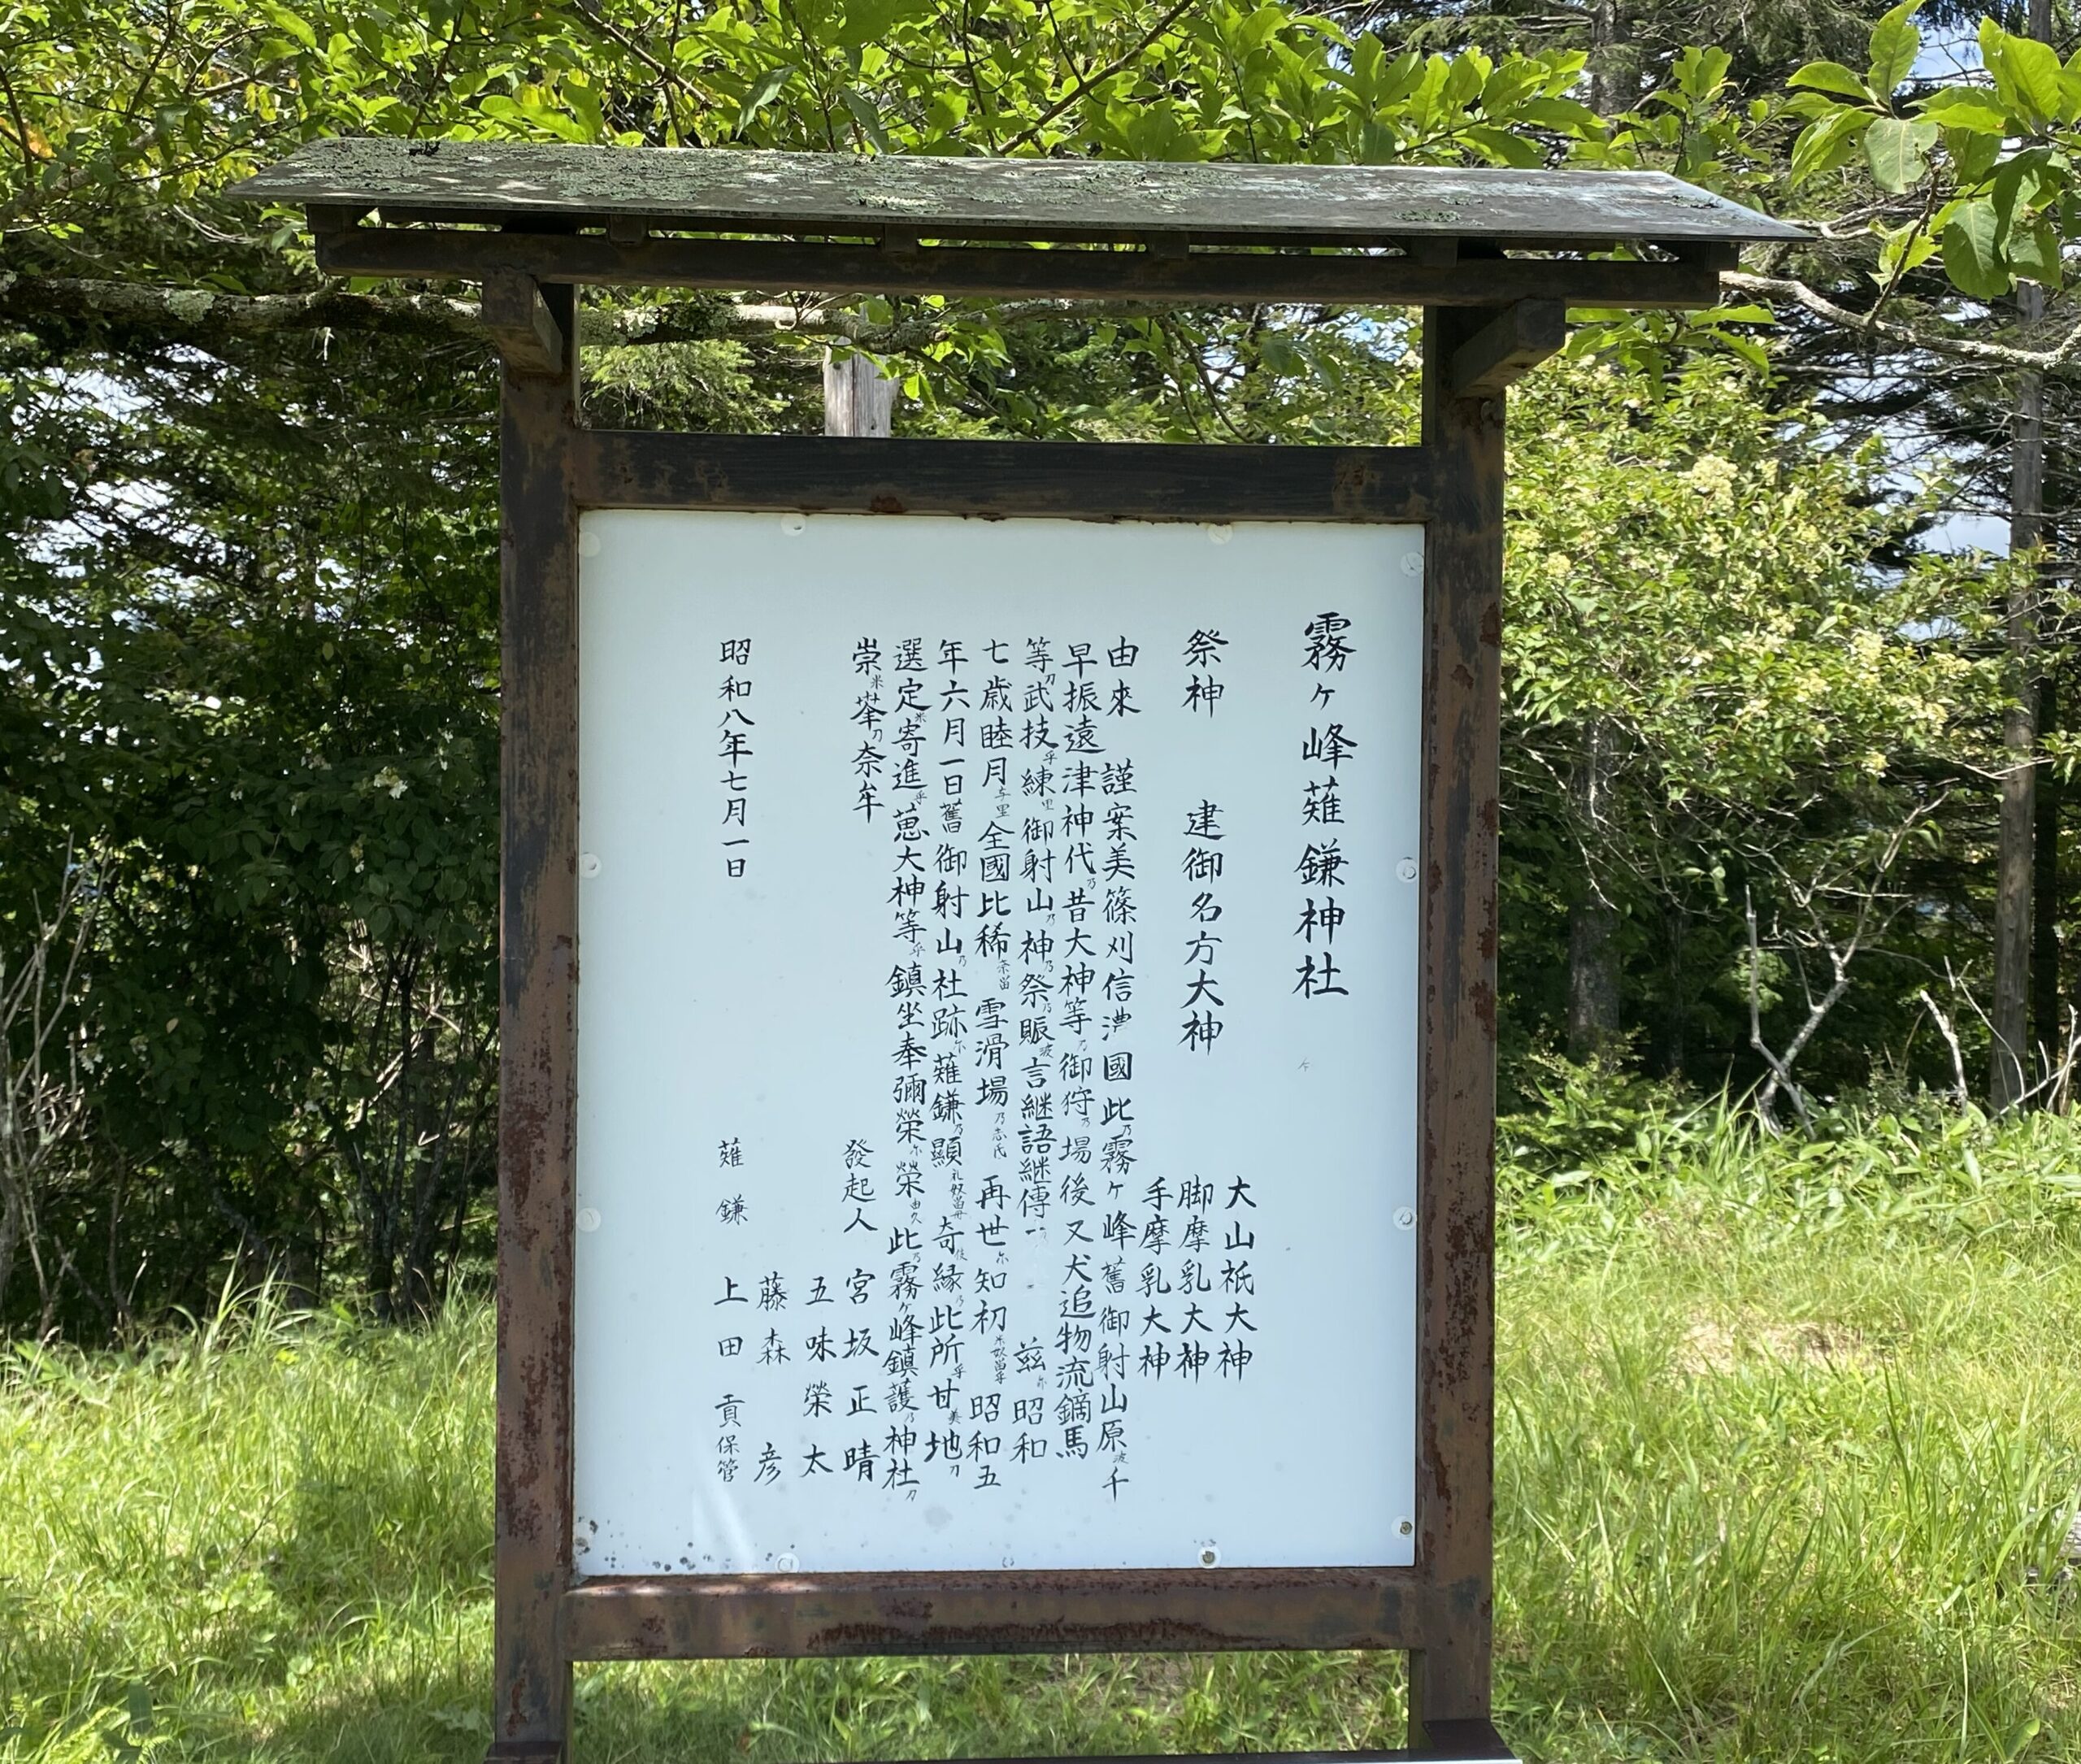 霧ヶ峰薙鎌神社
祭神　建御名方大神
大山祇大神
脚摩乳大神
手摩乳大神
由來　謹案美篠刈信濃國此乃霧ヶ峰舊御射山原波千
早振遠津神代乃昔大神等乃御狩乃場後又犬追物流鏑馬
等乃武技乎練里御射山乃神乃祭乃賑波言継語継傳 茲尓昭和
七歳睦月与里全國比稀奈留雪滑場乃志氐再世尓知初米奴留乎昭和五
年六月一日舊御射山乃社跡尓薙鎌乃顯礼奴留毋奇使縁乃此所乎甘美地乃
選定米寄進乎葸大神等乎鎮坐奉彌榮尓榮由久此乃霧ヶ峰鎮護乃神社乃
崇米 乃奈牟
發起人　宮坂正晴
五味榮太
藤森　彦
昭和八年七月一日
薙鎌　上田貢保管